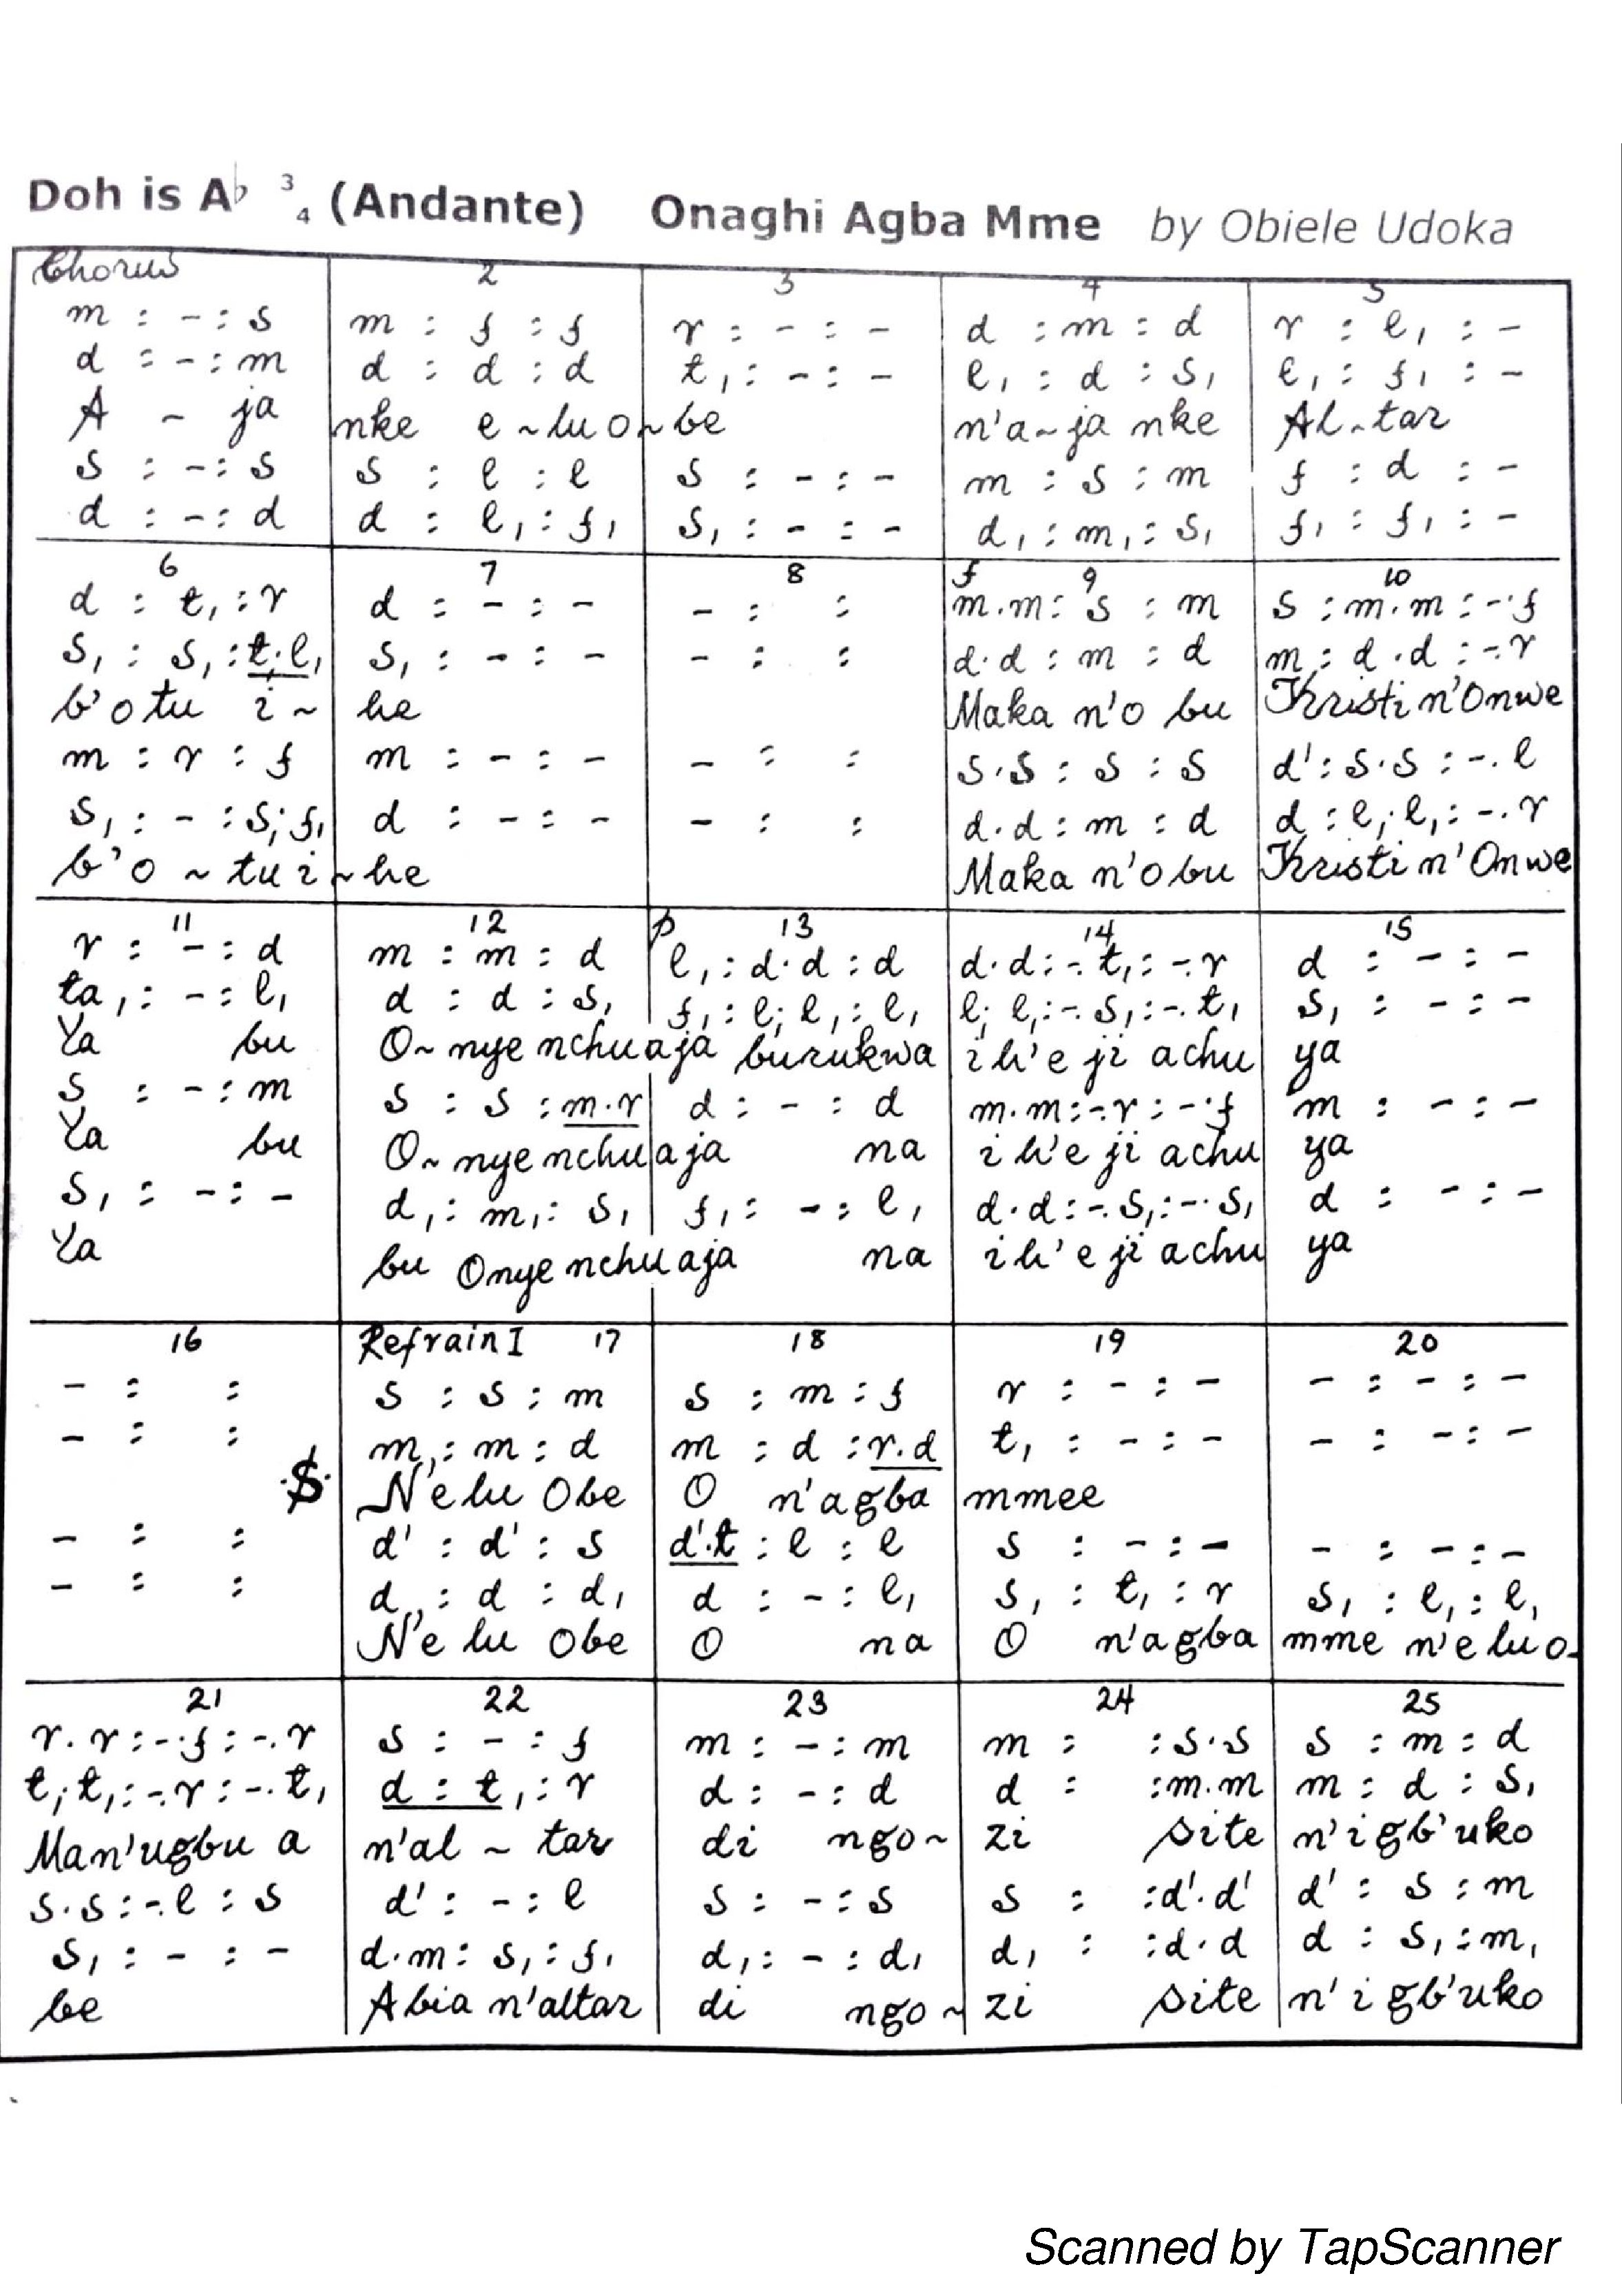 Doh is A♭ 3/4 (Andante) Onaghi Agba Mme by Obiele Udoka
Chorus 2 3 4 5
m : - : s | m : f : f | r : - : - | d : m : d | r : l, : -
d : - : m | d : d : d | t, : - : - | l, : d : s, | l, : f, : -
A ~ ja | nke e ~ lu o ~ be | n'a ~ ja nke | Al ~ tar
s : - : s | s : l : l | s : - : - | m : s : m | f : d : -
d : - : d | d : l, : f, | s, : - : - | d, : m, : s, | f, : f, : -
6 7 8 f 9 10
d : t, : r | d : - : - | - : : | m.m : s : m | s : m.m : -.f
s, : s, : t,.l, | s, : - : - | - : : | d.d : m : d | m : d.d : -.r
b'o tu i ~ | he | | Maka n'o bu | Kristi n'Onwe
m : r : f | m : - : - | - : : | s.s : s : s | d' : s.s : -.l
s, : - : s,.f, | d : - : - | - : : | d.d : m : d | d : l,.l, : -.r
b'o ~ tu i ~ he | | Maka n'o bu | Kristi n'Onwe
11 12 p 13 14 15
r : - : d | m : m : d | l, : d.d : d | d.d : -.t, : -.r | d : - : -
ta, : - : l, | d : d : s, | f, : l,.l, : l, | l,.l, : -.s, : -.t, | s, : - : -
Ya bu | O ~ nye nchu aja burukwa | i h'e ji achu | ya
s : - : m | s : s : m.r | d : - : d | m.m : -.r : -.f | m : - : -
Ya bu | O ~ nye nchu aja na | i h'e ji achu | ya
s, : - : - | d, : m, : s, | f, : - : l, | d.d : -.s, : -.s, | d : - : -
Ya | bu Onye nchu aja na | i h'e ji achu | ya
16 Refrain I 17 18 19 20
- : : | s : s : m | s : m : f | r : - : - | - : - : -
- : : | m, : m : d | m : d : r.d | t, : - : - | - : - : -
.$. | N'elu Obe | O n'agba | mmee
- : : | d' : d' : s | d'.t : l : l | s : - : - | - : - : -
- : : | d, : d : d, | d : - : l, | s, : t, : r | s, : l, : l,
N'elu Obe | O na | O n'agba | mme n'elu o-
21 22 23 24 25
r.r : -.f : -.r | s : - : f | m : - : m | m : : s.s | s : m : d
t,.t, : -.r : -.t, | d : t, : r | d : - : d | d : : m.m | m : d : s,
Man'ugbu a | n'al ~ tar | di ngo ~ | zi site | n'i gb'uko
s.s : -.l : s | d' : - : l | s : - : s | s : : d'.d' | d' : s : m
s, : - : - | d.m : s, : f, | d, : - : d, | d, : : d.d | d : s, : m,
be | Abia n'altar | di ngo ~ | zi site | n'i gb'uko
Scanned by TapScanner